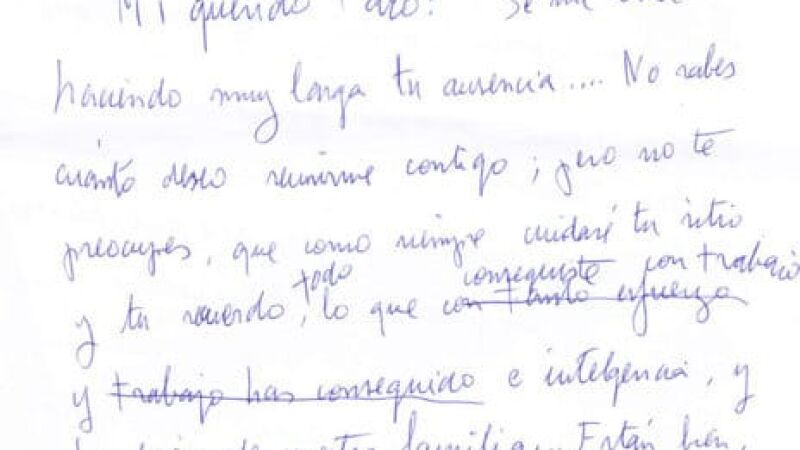 Mi querido Se me
haciendo muy larga tu ausencia.... No sabes
cuánto deseo reunirme contigo; pero no te
preocupes, que como siempre cuidaré tu sitio
todo conseguiste con trabajo
y tu recuerdo, lo que con tanto esfuerzo
y trabajo has conseguido e inteligencia, y
de nuestra familia... Están bien,